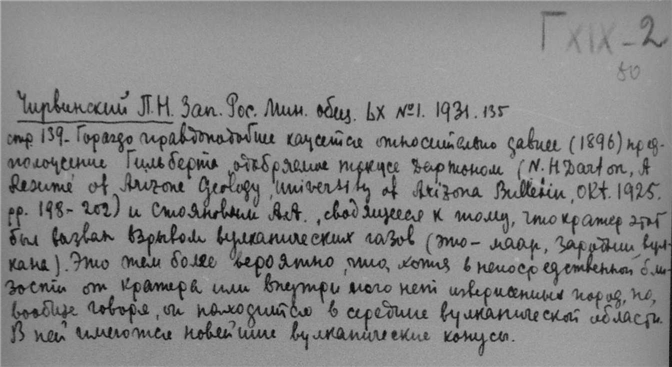 Г XIX - 2
80
Чирвинский П.Н. Зап. Рос. Мин. общ. LX №1. 1931. 135
стр 139 - Гораздо правдоподобнее кажется относительно давнее (1896) пред-
положение Гильберта, одобряемое также Дартоном (N.H Darton, A
Resumé of Arizona Geology, University of Arizona Bulletin, Okt. 1925.
pp. 198-202) и Стояновым А.А., сводящееся к тому, что кратер этот
был вызван взрывом вулканических газов (это - маар, зародыш вул-
кана). Это тем более вероятно, что, хотя в непосредственной бли-
зости от кратера или внутри него нет изверженных пород, но,
вообще говоря, он находится в середине вулканической области.
В ней имеются новейшие вулканические конусы.